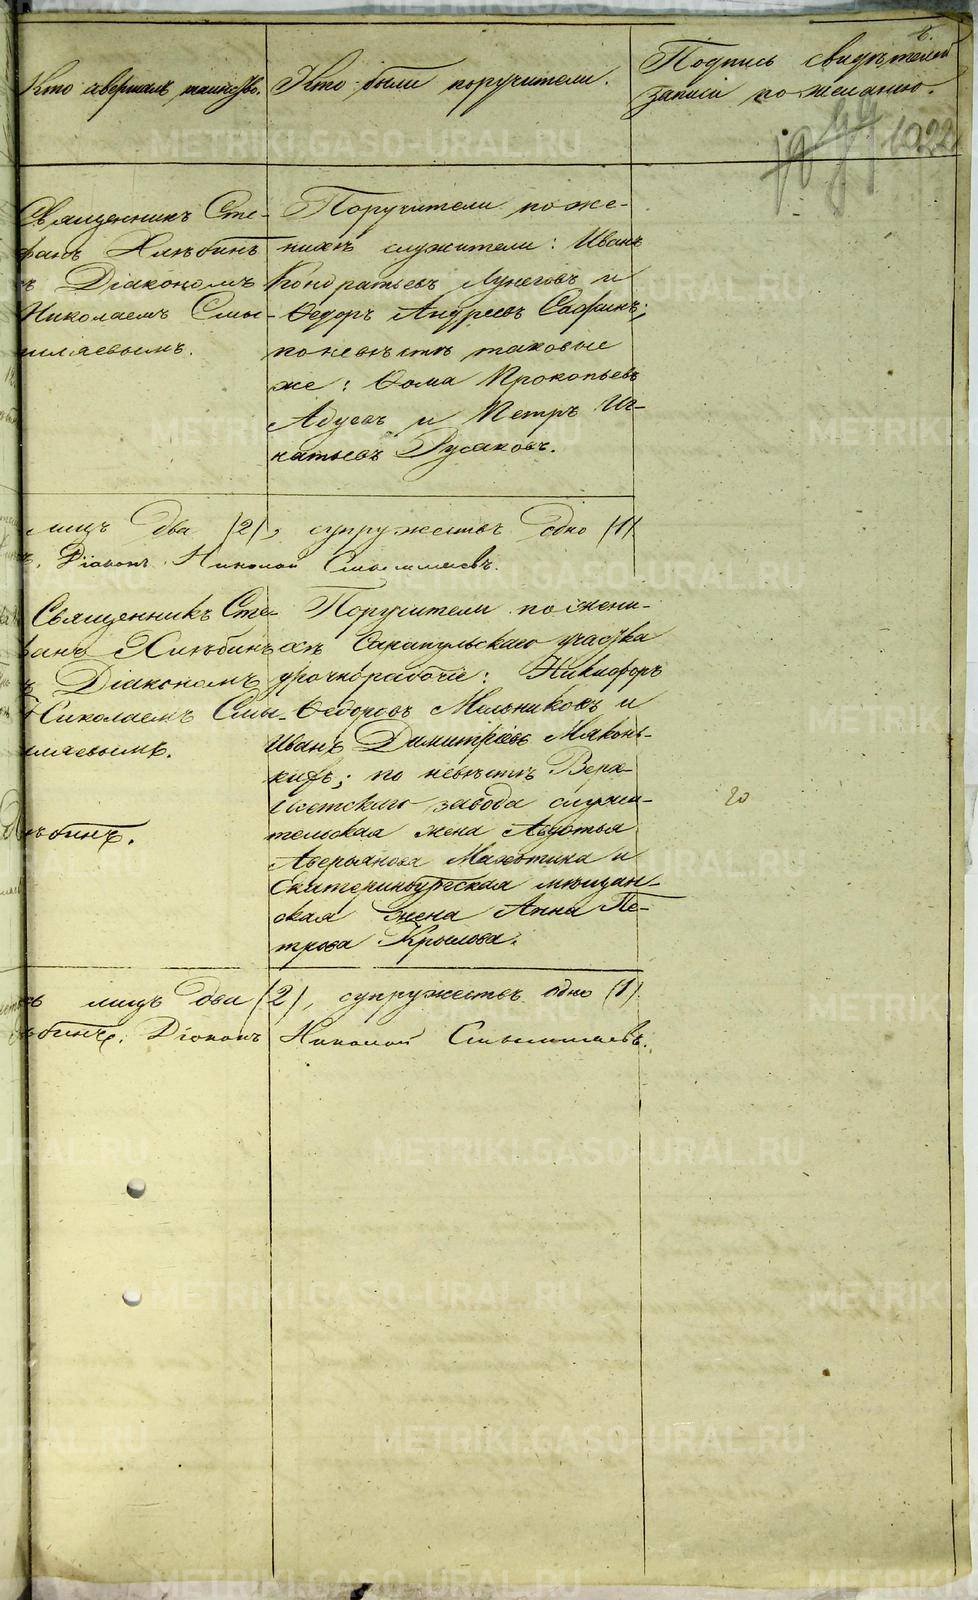 Кто совершалъ таинство.
Кто были поручители.
Подпись свидѣтелей
записи по желанію.
1022
Священникъ Сте-
фанъ Хлѣбинъ
съ Діакономъ
Николаемъ Смы-
шляевымъ.
Поручители по же-
нихѣ служители: Иванъ
Кондратьевъ Лунеговъ и
Ѳедоръ Андреевъ
по невѣстѣ таковые
же: Ѳома Прокопьевъ
и Петръ Иг-
натьевъ Русаковъ.
лицъ два (2), супружествъ одно (1)
Діаконъ Николай Смышляевъ.
Священникъ Сте-
фанъ Хлѣбинъ
съ Діакономъ
Николаемъ Смы-
шляевымъ.
Хлѣбинъ.
Поручители по жени-
хѣ Сарапульскаго участка
урочнорабочіе: Никифоръ
Ѳедоровъ Мельниковъ и
Иванъ Димитріевъ Мяконь-
кихъ; по невѣстѣ Верх-
Исетскаго завода служи-
тельская жена Авдотья
Аверьянова Махоткина и
Екатеринбургская мѣщан-
ская жена Анна Пе-
трова Крылова.
20
лицъ два (2), супружествъ одно (1)
Хлѣбинъ. Діаконъ Николай Смышляевъ.
METRIKI.GASO-URAL.RU